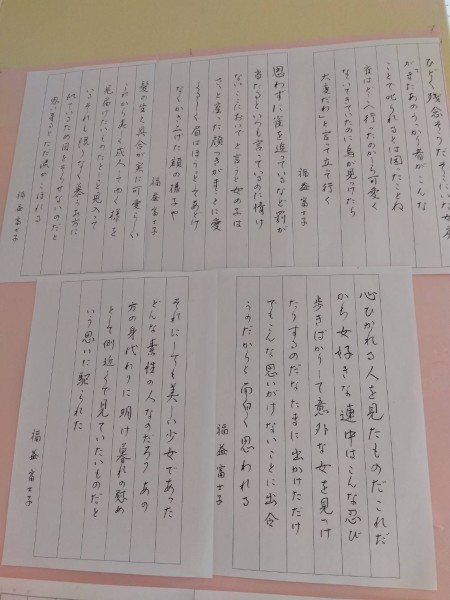 ひどく残念そうだそこにいた女房
が「またあのうっかり者がこんな
ことで叱られるとは困ったことね
雀はどこへ行ったのかしら可愛く
なってきていたのに烏が見つけたら
大変だわ」と言って立って行く
福益富士子
思わずに雀を追っているなど罰が
当たるといつも言っているのに情け
ないこっちにおいでと言う女の子は
さっと座った顔つきがまことに愛
らしく眉はほうっとしてあどけ
なくかき上げた額の様子や
福益富士子
髪の生え具合が実に可愛らしい
これから美しく成人してゆく様を
見届けたいものだとご覧になって
いるそれも限りなく慕うお方に
似ているため目を引くせいなのだと
思いますとただ涙がこぼれる
福益富士子
心ひかれる人を見たものだこれだ
から女好きな連中はこんな忍び
歩きばかりして意外な女を見つけ
たりするのだなたまに出かけただけ
でもこんな思いがけないことに出合
うのだからと面白く思われる
福益富士子
それにしても美しい少女であった
どんな素性の人なのだろうあの
方の身代わりに明け暮れの慰め
として側近くで見ていたいものだと
いう思いに駆られた
福益富士子